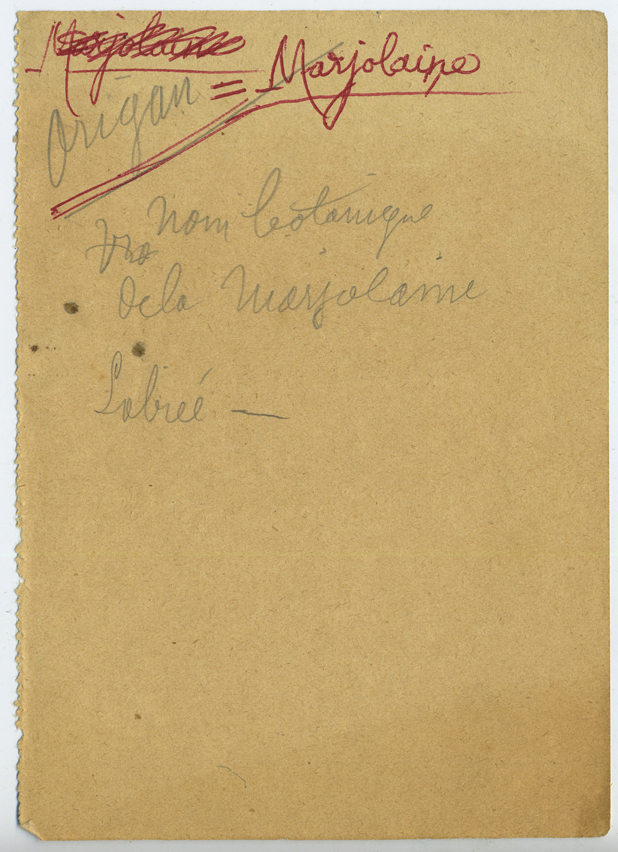 Marjolaine
Origan = Marjolaine
Nom botanique
de la Marjolaine
Labieé —